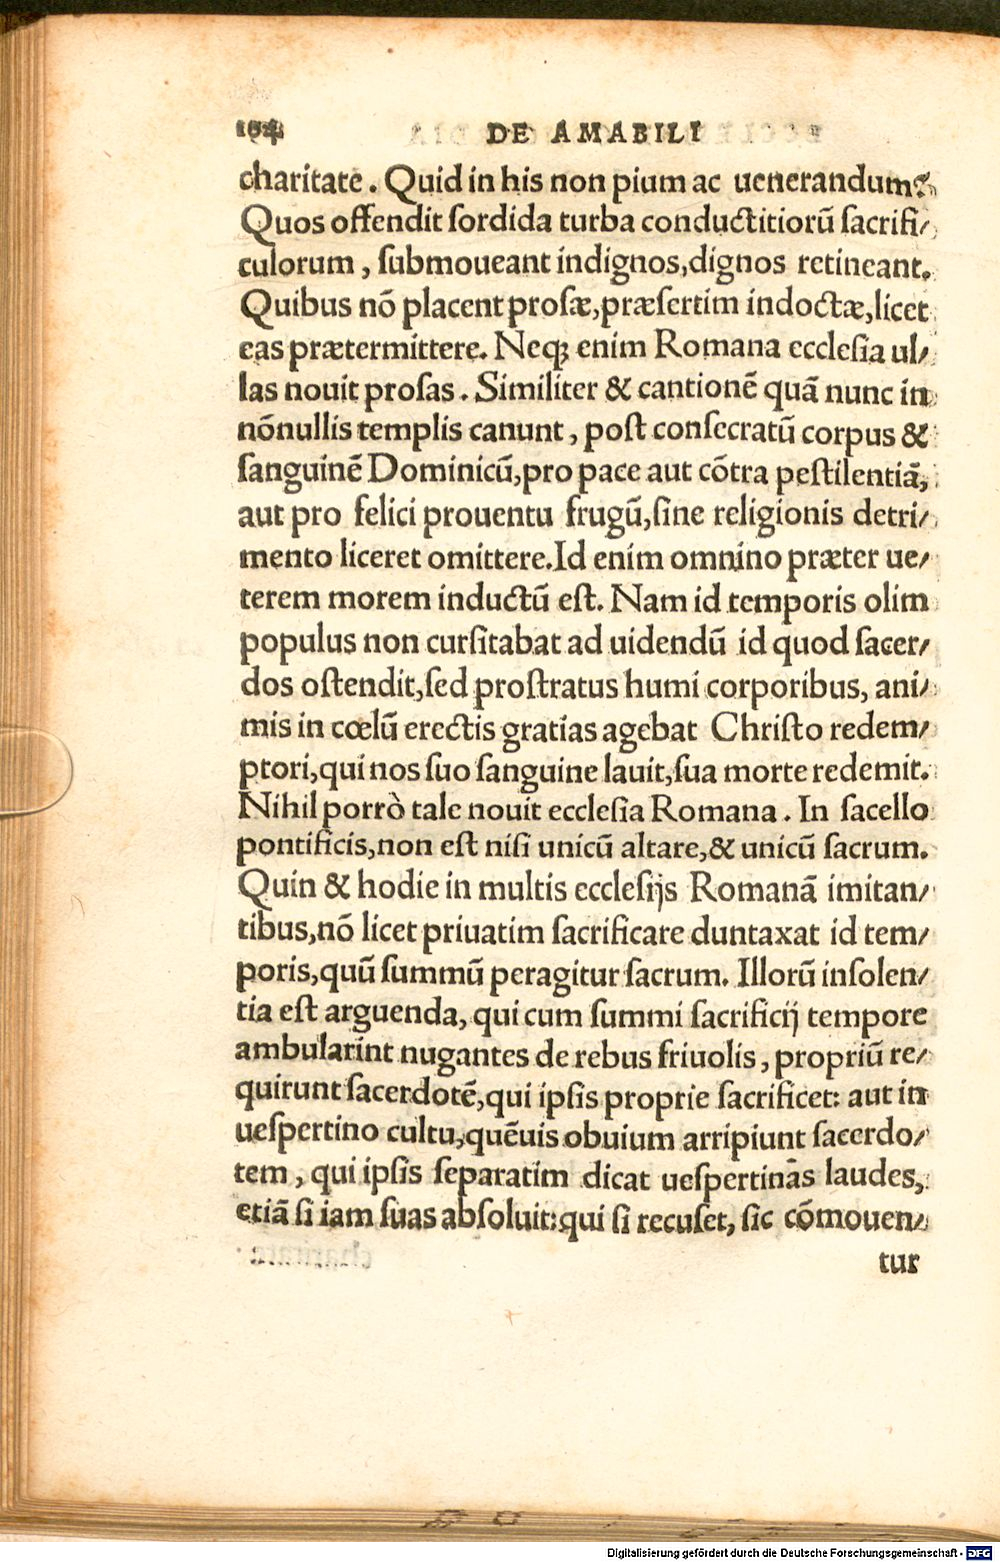 104 DE AMABILI
charitate. Quid in his non pium ac uenerandum?
Quos offendit ſordida turba conductitiorū ſacrifi/
culorum, ſubmoueant indignos, dignos retineant.
Quibus nō placent proſæ, præſertim indoctæ, licet
eas prætermittere. Neqꝫ enim Romana eccleſia ul/
las nouit proſas. Similiter & cantionē quā nunc in
nōnullis templis canunt, poſt conſecratū corpus &
ſanguinē Dominicū, pro pace aut cōtra peſtilentiā,
aut pro felici prouentu frugū, ſine religionis detri/
mento liceret omittere. Id enim omnino præter ue/
terem morem inductū eſt. Nam id temporis olim
populus non curſitabat ad uidendū id quod ſacer/
dos oſtendit, ſed proſtratus humi corporibus, ani/
mis in cœlū erectis gratias agebat Chriſto redem/
ptori, qui nos ſuo ſanguine lauit, ſua morte redemit.
Nihil porrò tale nouit eccleſia Romana. In ſacello
pontificis, non eſt niſi unicū altare, & unicū ſacrum.
Quin & hodie in multis eccleſijs Romanā imitan/
tibus, nō licet priuatim ſacrificare duntaxat id tem/
poris, quū ſummū peragitur ſacrum. Illorū inſolen/
tia eſt arguenda, qui cum ſummi ſacrificij tempore
ambularint nugantes de rebus friuolis, propriū re/
quirunt ſacerdotē, qui ipſis proprie ſacrificet: aut in
ueſpertino cultu, quēuis obuium arripiunt ſacerdo/
tem, qui ipſis ſeparatim dicat ueſpertinas laudes,
etiā ſi iam ſuas abſoluit: qui ſi recuſet, ſic cōmouen/
tur
Digitalisierung gefördert durch die Deutsche Forschungsgemeinschaft - DFG